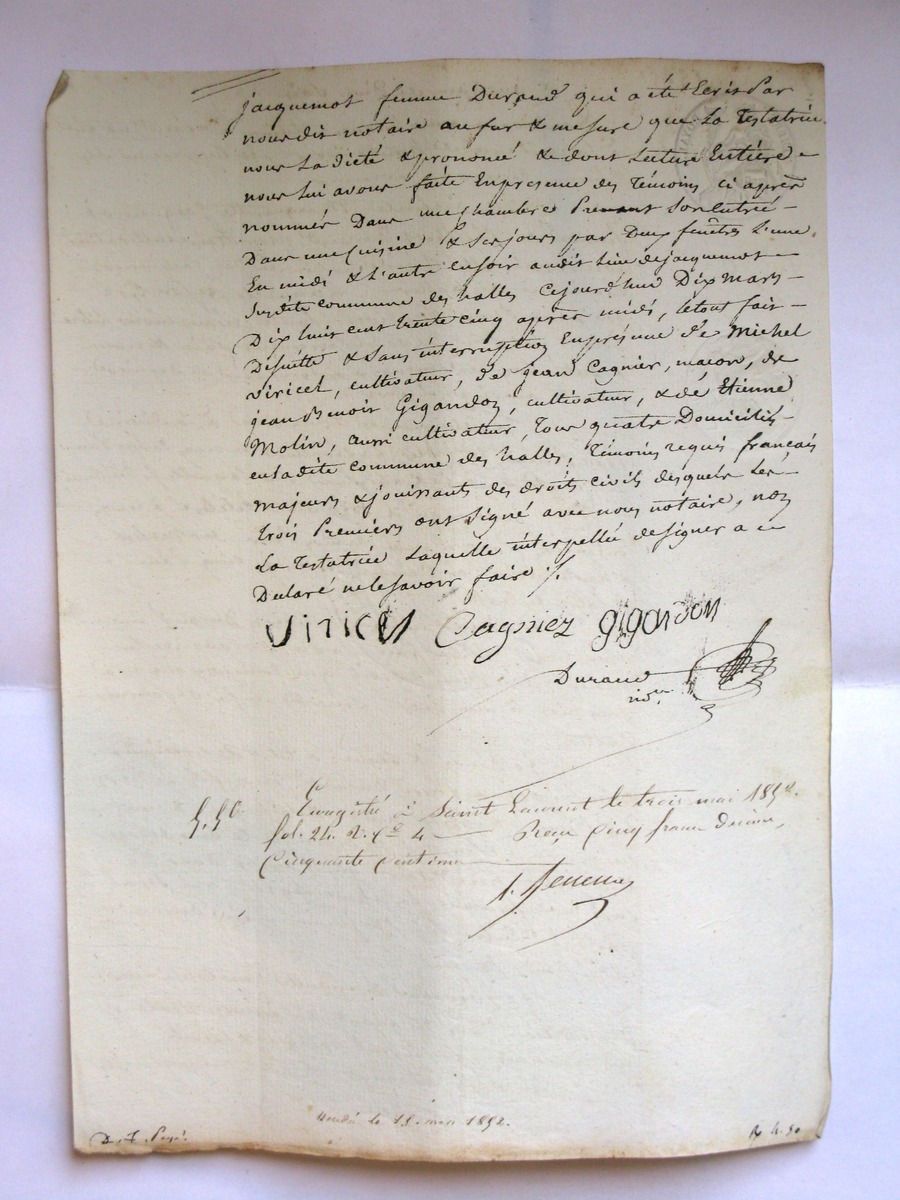 jacquemot femme Durand qui a été Ecrit Par
nous dit notaire au fur & mesure que La Testatrice
nous La dicté & prononcé & dont Lecture Entière
nous Lui avons faite En presence des Témoins ci après
nommés Dans une chambre Prenant Son entrée
Dans une Cuisine & Ses jours par Deux fenêtres L'une
En midi & L'autre en soir audit Lieu de jacquemot
Susdite commune des halles Cejourd'hui Dix mars
Dix huit cent trente cinq après midi, le tout fait
De suitte & Sans interruption En présence de Michel
Viricel, cultivateur, de jean Cagnier, maçon, de
jean Benoit Gigandon, cultivateur, & de Etienne
Molin, aussi cultivateur, Tous quatre Domiciliés
en ladite Commune des halles, Témoins requis français
majeurs & jouissants des droits civils desquels Les
trois Premiers ont Signé avec nous notaire, non
La Testatrice Laquelle interpellée de signer a
Declaré ne le Savoir faire ./.
Viricel Cagniez gigandon
Durand
nore
5.50 Enregistré à Saint Laurent le trois mai 1852.
fol. 24. v. Ce 4 Reçu Cinq francs decime,
Cinquante centimes
le 19 mai 1852.
D. T. Payé.
R 4.50